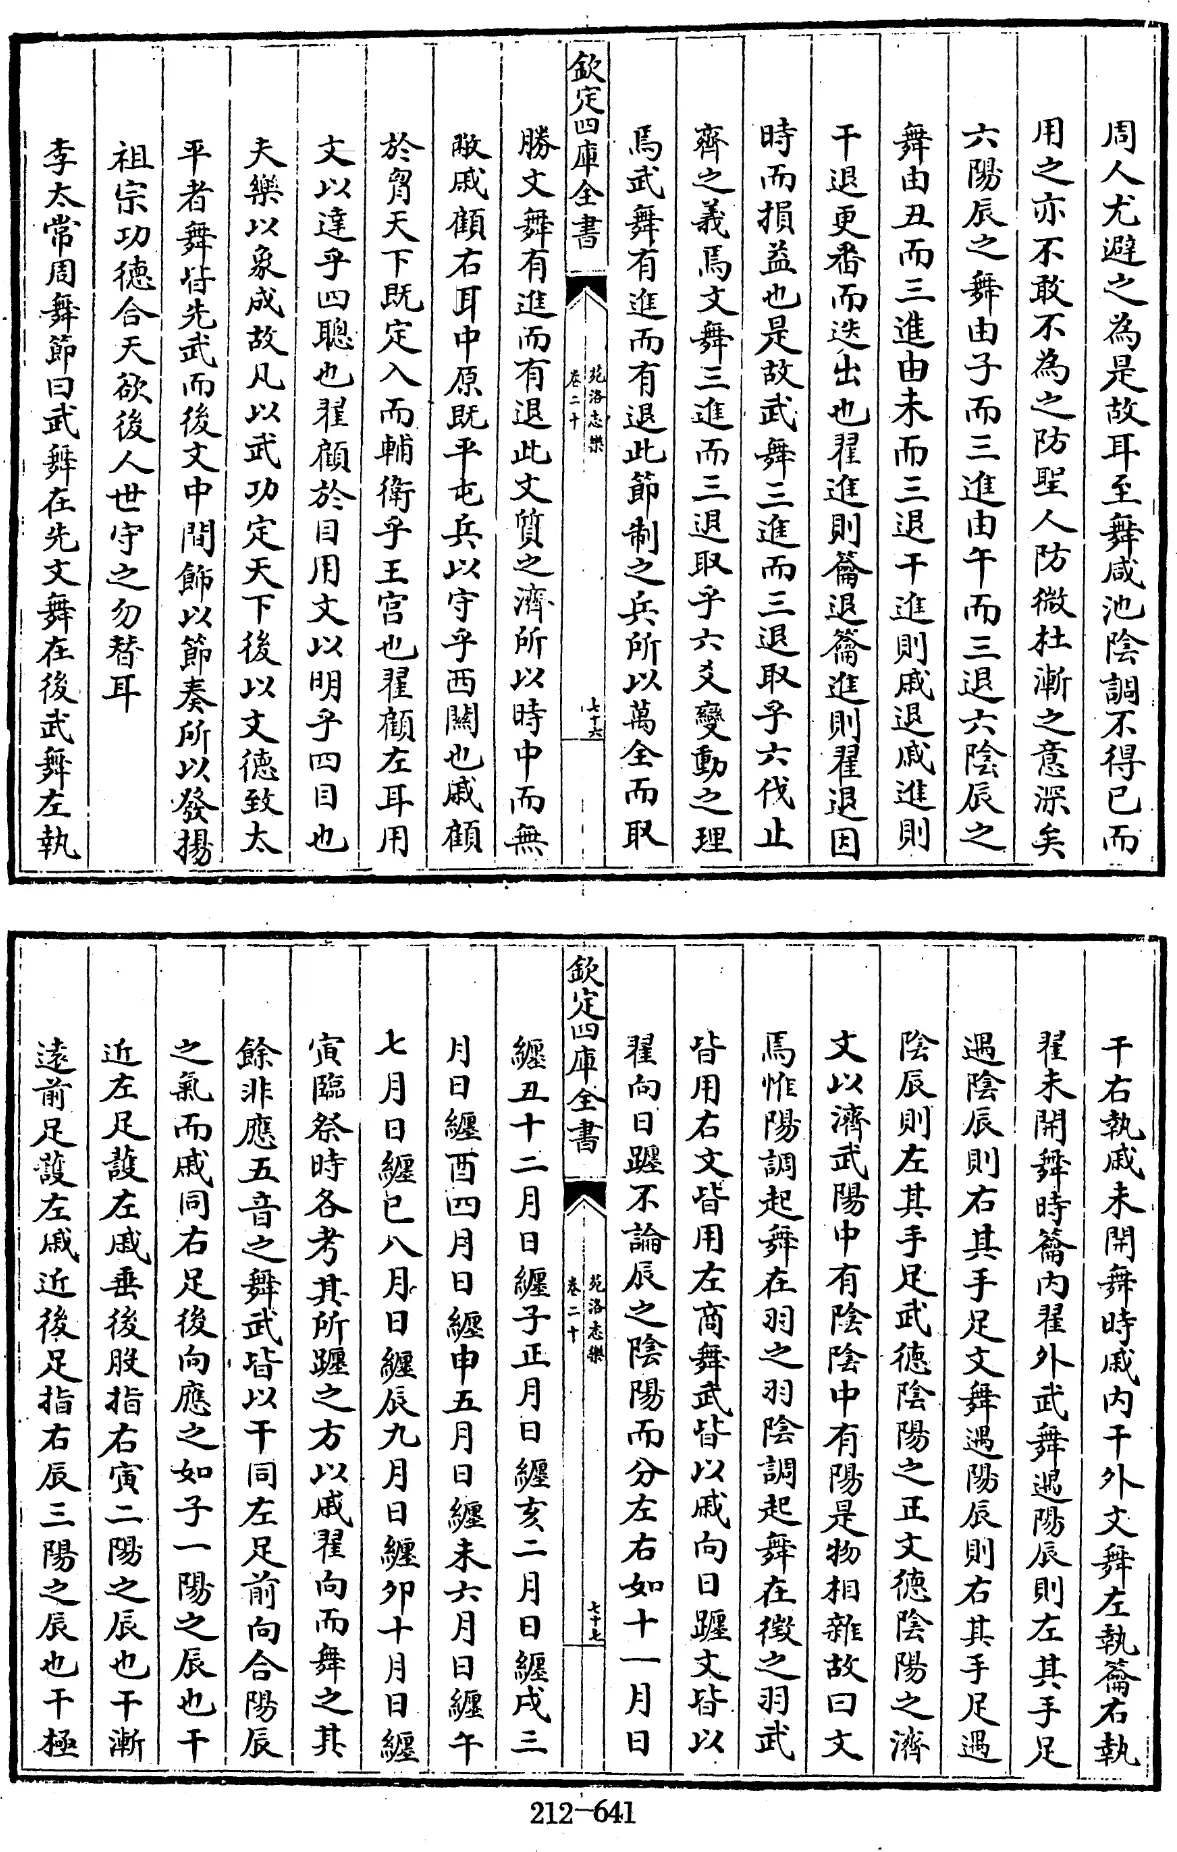 周人尤避之為是故耳至舞咸池陰調不得已而
用之亦不敢不為之防聖人防微杜漸之意深矣
六陽辰之舞由子而三進由午而三退六陰辰之
舞由丑而三進由未而三退干進則戚退戚進則
干退更番而迭出也翟進則籥退籥進則翟退因
時而損益也是故武舞三進而三退取乎六伐止
齊之義焉文舞三進而三退取乎六爻變動之理
焉武舞有進而有退此節制之兵所以萬全而取
欽定四庫全書
苑洛志樂
卷二十
七十六
勝文舞有進而有退此文質之濟所以時中而無
敝戚顧右耳中原既平屯兵以守乎西關也戚顧
於胷天下既定入而輔衛乎王宫也翟顧左耳用
文以達乎四聰也翟顧於目用文以明乎四目也
夫樂以象成故凡以武功定天下後以文德致太
平者舞皆先武而後文中間飾以節奏所以發揚
祖宗功德合天欲後人世守之勿替耳
李太常周舞節曰武舞在先文舞在後武舞左執
干右執戚未開舞時戚内干外文舞左執籥右執
翟未開舞時籥内翟外武舞遇陽辰則左其手足
遇陰辰則右其手足文舞遇陽辰則右其手足遇
陰辰則左其手足武德陰陽之正文德陰陽之濟
文以濟武陽中有陰陰中有陽是物相雜故曰文
焉惟陽調起舞在羽之羽陰調起舞在徵之羽武
皆用右文皆用左商舞武皆以戚向日躔文皆以
翟向日躔不論辰之陰陽而分左右如十一月日
欽定四庫全書
苑洛志樂
卷二十
七十七
纏丑十二月日纏子正月日纏亥二月日纏戌三
月日纏酉四月日纏申五月日纏未六月日纏午
七月日纏巳八月日纏辰九月日纏卯十月日纏
寅臨祭時各考其所躔之方以戚翟向而舞之其
餘非應五音之舞武皆以干同左足前向合陽辰
之氣而戚同右足後向應之如子一陽之辰也干
近左足䕶左戚垂後股指右寅二陽之辰也干漸
逺前足䕶左戚近後足指右辰三陽之辰也干極
212-641